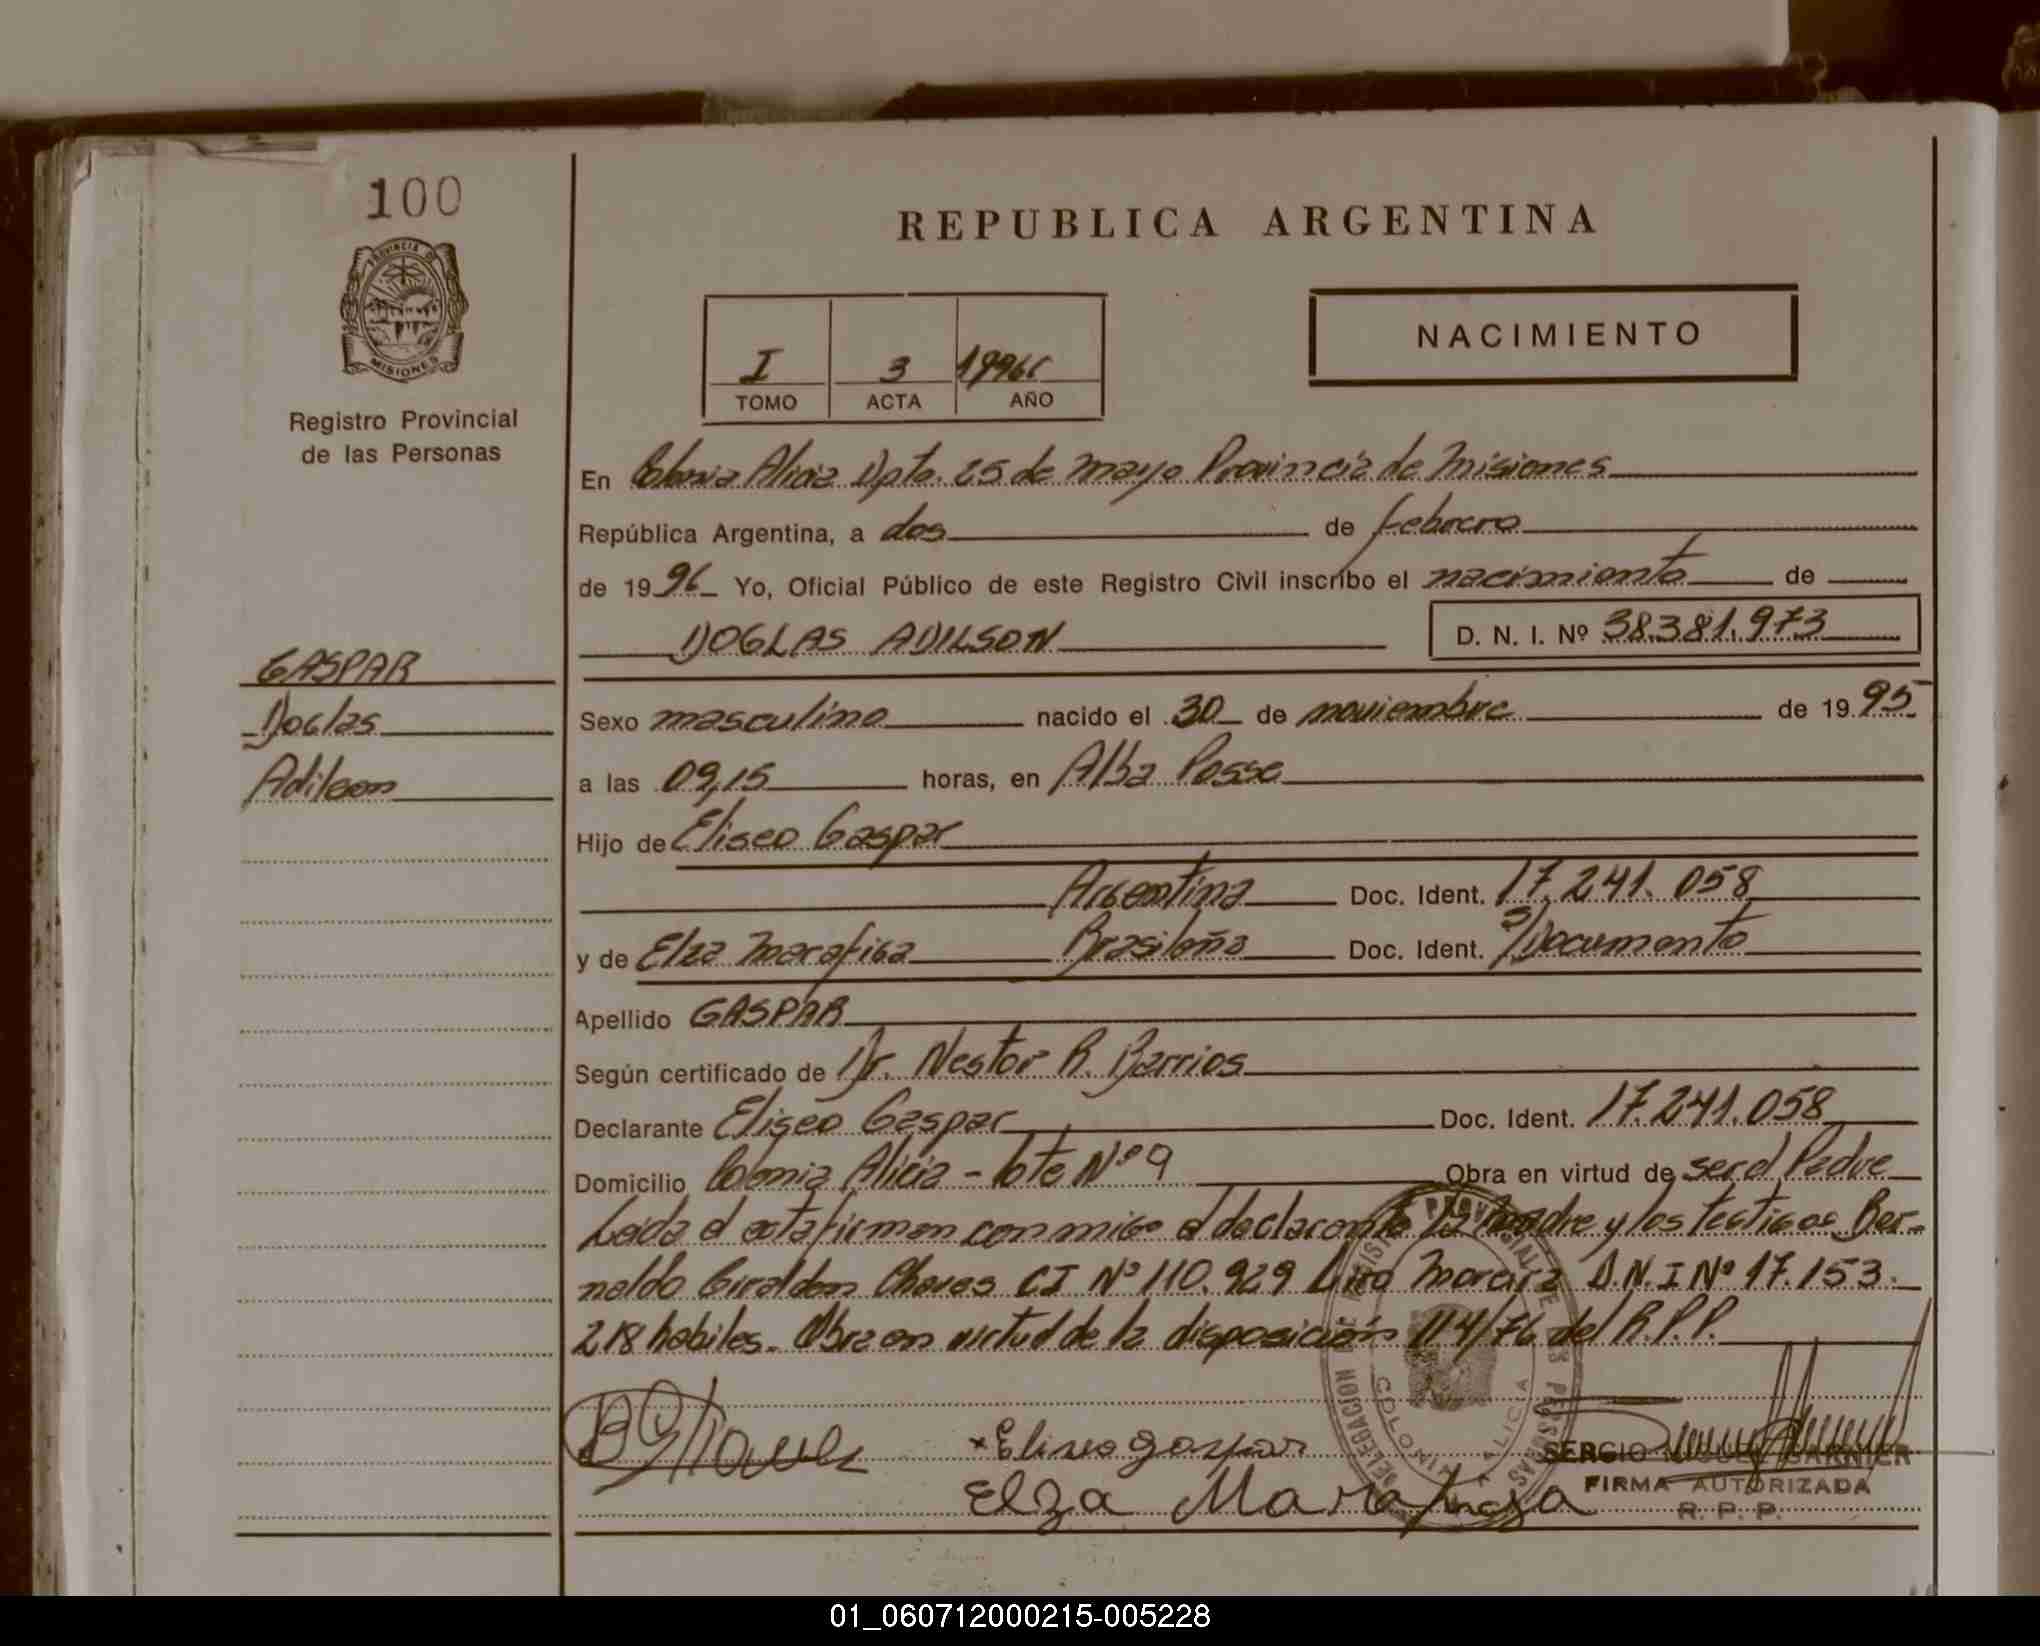 100
PROVINCIA DE
MISIONES
Registro Provincial
de las Personas
GASPAR
Doglas
Adilson
REPUBLICA ARGENTINA
I 3 1996
TOMO ACTA AÑO
NACIMIENTO
En Colonia Alicia Dpto. 25 de mayo Provincia de Misiones
República Argentina, a dos de febrero
de 1996 Yo, Oficial Público de este Registro Civil inscribo el nacimiento de
DOGLAS ADILSON D. N. I. Nº 38.381.973
Sexo masculino nacido el 30 de noviembre de 1995
a las 09,15 horas, en Alba Posse
Hijo de Eliseo Gaspar
Argentina Doc. Ident. 17.241.058
y de Elza Marafiga Brasileña Doc. Ident. s/Documento
Apellido GASPAR
Según certificado de Dr. Nestor R. Barrios
Declarante Eliseo Gaspar Doc. Ident. 17.241.058
Domicilio Colonia Alicia - lote Nº 9 Obra en virtud de ser el Padre
Leida el acta firman conmigo el declarante la madre y los testigos Ber-
naldo Chaves CI Nº 110.929 D.N.I Nº 17.153.
218 habiles. Obra en virtud de la disposición 114/76 del R.P.P.
Eliseo gaspar
Elza Marafiga
SERGIO MIGUEL GARNIER
FIRMA AUTORIZADA
R. P. P.
COLONIA ALICIA
01_060712000215-005228